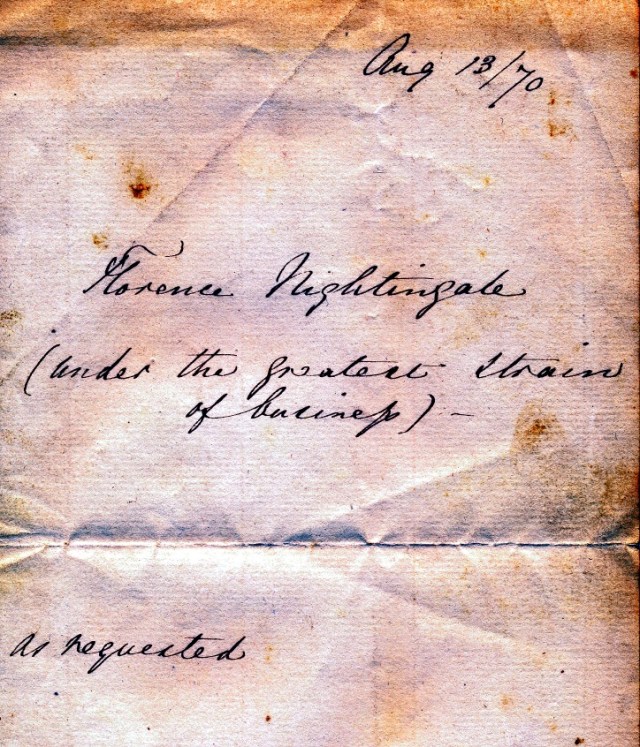 Aug 13/70
Florence Nightingale
(under the greatest strain
of business) –
as requested